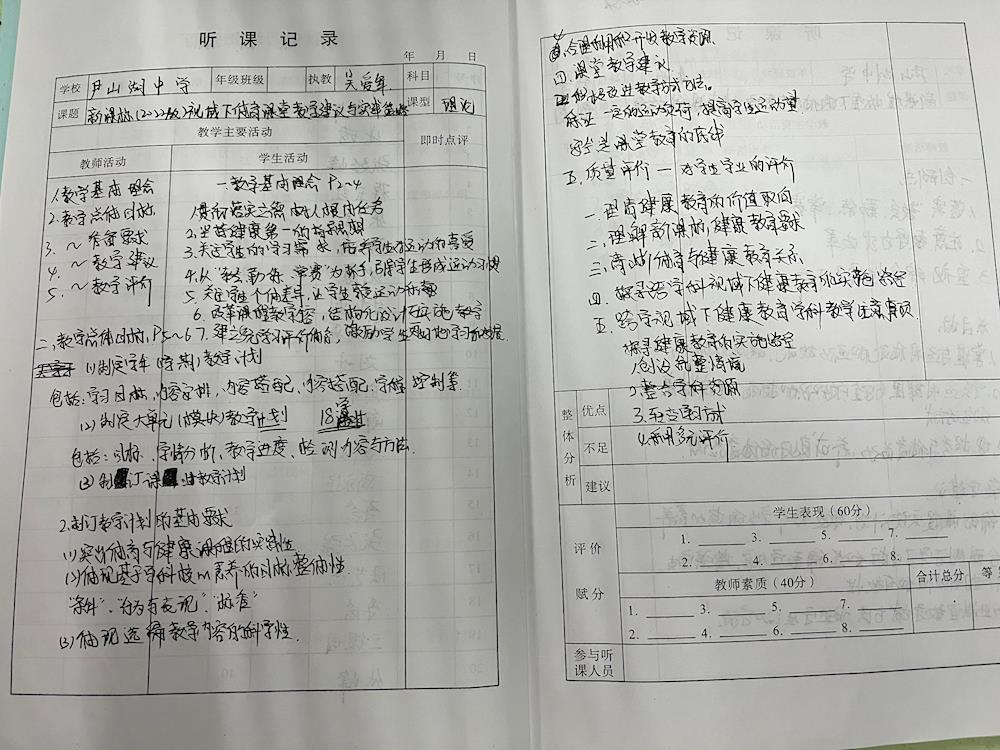 听课记录
年 月 日
学校 尹山湖中学 年级班级 执教 吴爱军 科目
课题 新课标(2022版)视域下体育课堂教学建议与实操策略 课型 理论
教学主要活动 即时点评
教师活动 学生活动
1.教学基本理念
2.教学总体目标
3. ~ 准备要求
4. ~ 教学建议
5. ~ 教学评价
一.教学基本理念 P2~4
1.贯彻落实立德树人根本任务
2.坚持健康第一的指导思想
3.关注学生的学习需求,培养学生对运动的喜爱
4.从"教会、勤练、常赛"为抓手,引导学生形成运动习惯
5.关注学生个体差异,让学生享受运动乐趣
6.改革课程教学内容,结构化设计运动教学
7.建立完善学习评价体系,激励学生更好地学习和发展
二、教学总体目标,P5~6
(1)制定学年(学期)教学计划
包括:学习目标、内容安排,内容搭配、内容搭配:字体、控制等
(2)制定大单元(模块)教学计划 18学
包括:目标、学情分析、教学进度、检测内容与方法.
(3)制订课时教学计划
2.制订教学计划的基本要求
(1)突出体育与健康课程的实践性
(2)体现基于学科核心素养的目标整体性
"条件"、"行为与表现"、"标准"
(3)体现选编教学内容的科学性.
合理利用和开发教学资源
四.课堂教学建议
积极改进教学方式方法。
保证一定的运动负荷,提高学生运动量
安全是课堂教育的底线
五.质量评价 — 对学生学业的评价
一.体育健康教育的价值取向
二.理解新课标,健康教育要求
三.厘清体育与健康教育关系
四.探寻跨学科视域下健康教育的实施路径
五.跨学视域下健康教育学科教学注意事项
探寻健康教育的实施路径
1.创设完整情境
2.整合学科资源
3.
4.利用多元评价
整体分析 优点
不足
建议
评价赋分 学生表现(60分)
1. 3. 5. 7.
2. 4. 6. 8.
教师素质(40分) 合计总分 等
1. 3. 5. 7.
2. 4. 6. 8.
参与听课人员